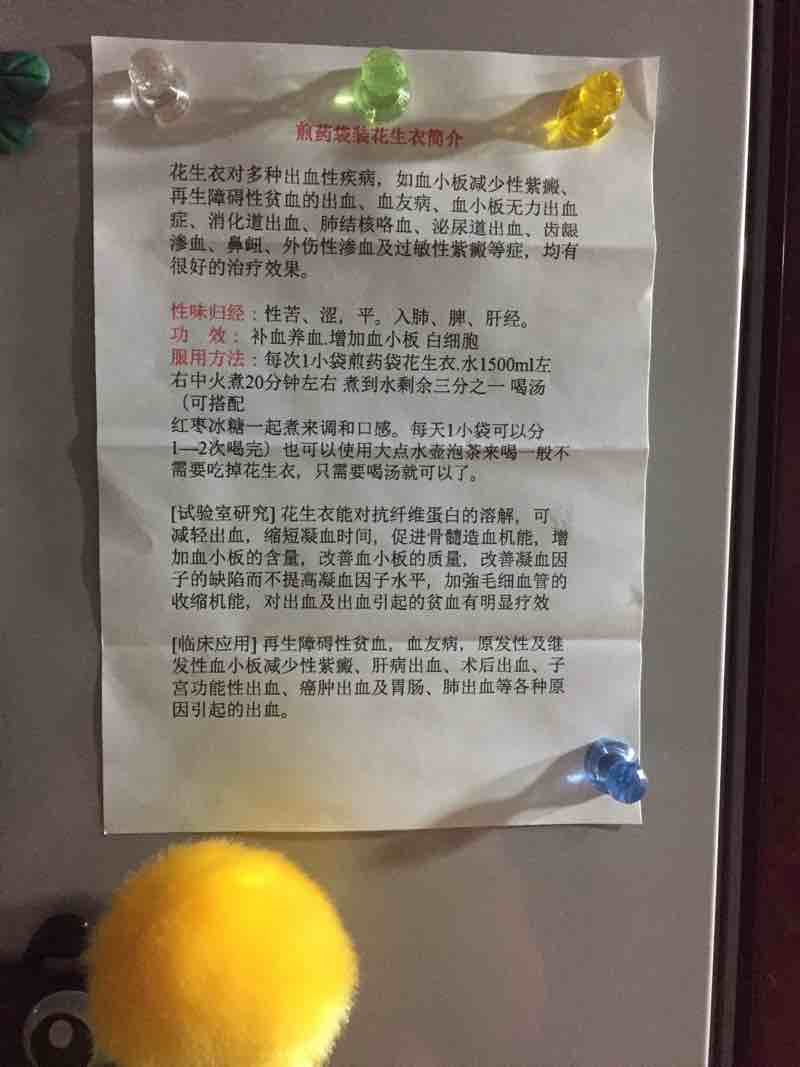 煎药袋装花生衣简介
花生衣对多种出血性疾病，如血小板减少性紫癜、
再生障碍性贫血的出血、血友病、血小板无力出血
症、消化道出血、肺结核咯血、泌尿道出血、齿龈
渗血、鼻衄、外伤性渗血及过敏性紫癜等症，均有
很好的治疗效果。
性味归经：性苦、涩，平。入肺、脾、肝经。
功 效： 补血养血.增加血小板 白细胞
服用方法：每次1小袋煎药袋花生衣.水1500ml左
右中火煮20分钟左右 煮到水剩余三分之一 喝汤
（可搭配
红枣冰糖一起煮来调和口感。每天1小袋可以分
1—2次喝完）也可以使用大点水壶泡茶来喝一般不
需要吃掉花生衣，只需要喝汤就可以了。
[试验室研究] 花生衣能对抗纤维蛋白的溶解，可
减轻出血，缩短凝血时间，促进骨髓造血机能，增
加血小板的含量，改善血小板的质量，改善凝血因
子的缺陷而不提高凝血因子水平，加強毛细血管的
收缩机能，对出血及出血引起的贫血有明显疗效
[临床应用] 再生障碍性贫血，血友病，原发性及继
发性血小板减少性紫癜、肝病出血、术后出血、子
宫功能性出血、癌肿出血及胃肠、肺出血等各种原
因引起的出血。